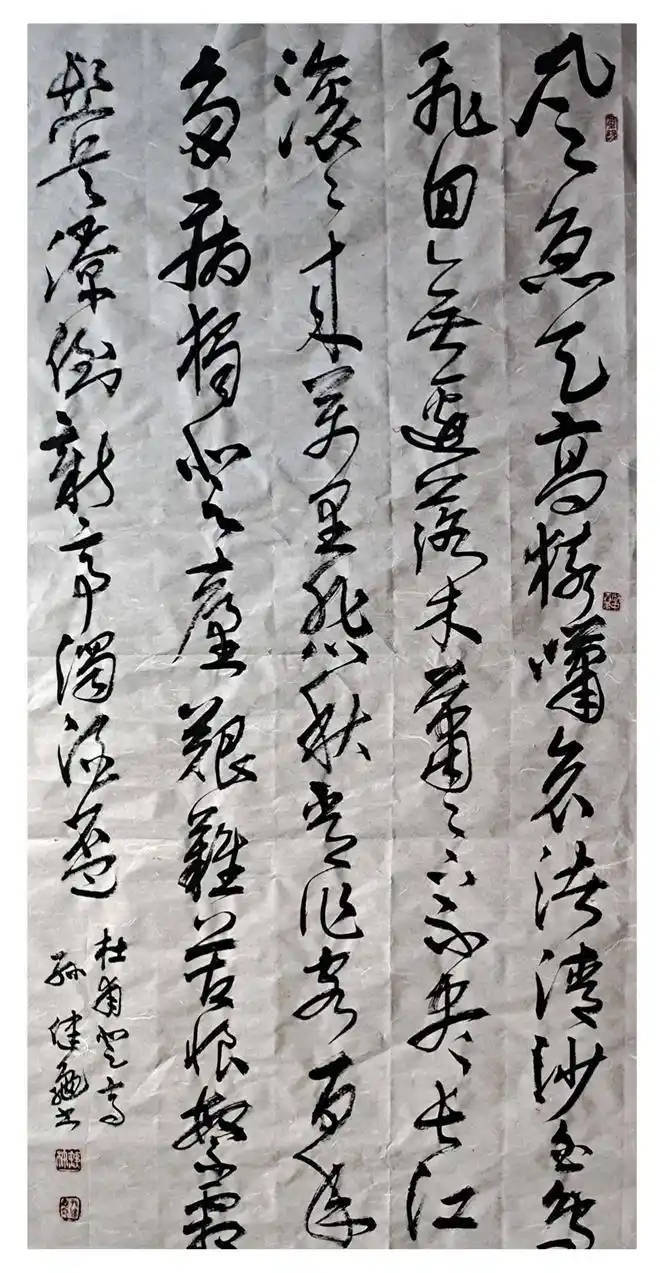 風急天高猿嘯哀渚清沙白鳥
飛回無邊落木蕭々下不盡長江
滚々來萬里悲秋常作客百年
多病獨登臺艱難苦恨繁霜
鬢潦倒新亭濁酒盃
杜甫登高
孫健书